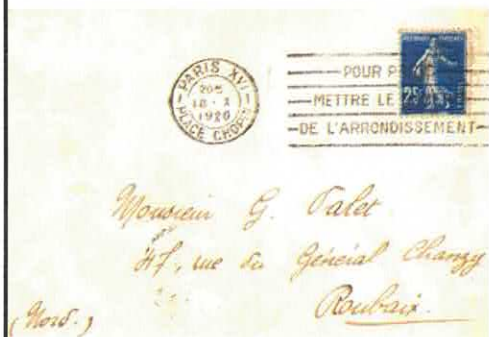 PARIS XVI
20H
18 - X
1926
PLACE CHOPIN
POUR P
METTRE LE
DE L'ARRONDISSEMENT
25c
Monsieur G. Valet
47, rue du Général Chanzy
Roubaix.
(Nord.)